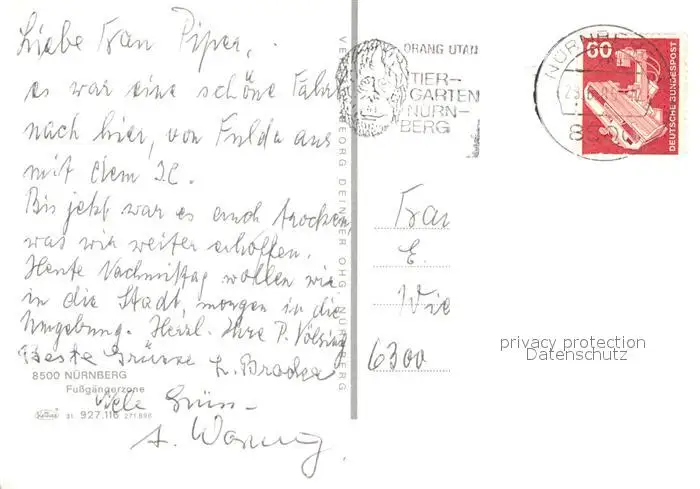 Liebe Frau Piper,
es war eine schöne Fahrt
nach hier, von Fulda aus
mit dem IC.
Bis jetzt war es auch trocken,
was wir weiter erhoffen.
Heute Nachmittag wollen wir
in die Stadt, morgen in die
Umgebung. Herzl. Ihre P.
Beste Grüsse
8500 NÜRNBERG
Fußgängerzone
Viele Grüsse
31 927.116 271 898
A.
GEORG DEINZER OHG NÜRNBERG
ORANG UTAN
TIER-
GARTEN
NÜRN-
BERG
NÜRNBE
850
60
DEUTSCHE BUNDESPOST
Frau
E.
Wie
6300
privacy protection
Datenschutz